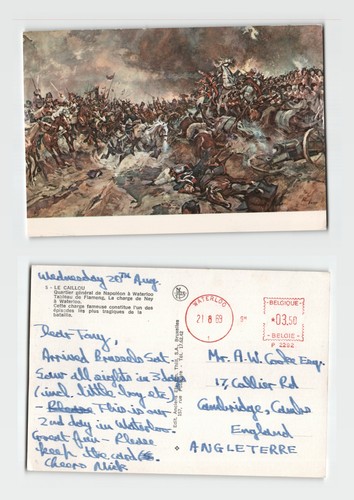 5 - LE CAILLOU
Quartier général de Napoléon à Waterloo
Tableau de Flameng, La charge de Ney
à Waterloo.
Cette charge fameuse constitue l'un des
épisodes les plus tragiques de la
bataille.
Wednesday 20th Aug.
Dear Tony,
Arrived Brussels Sat.
Saw all sights in 3 days
(incl. little boy etc)
- Please This is our
2nd day in Waterloo.
Great fun - Please
keep the card
Cheers Nick
Thill, S.A., Bruxelles
WATERLOO
21 8 69
1
BELGIQUE
*03,50
BELGIË
P 2262
Mr. A.W. Cooke Esq.
17, Collier Rd
Cambridge, Cambs
England
ANGLETERRE